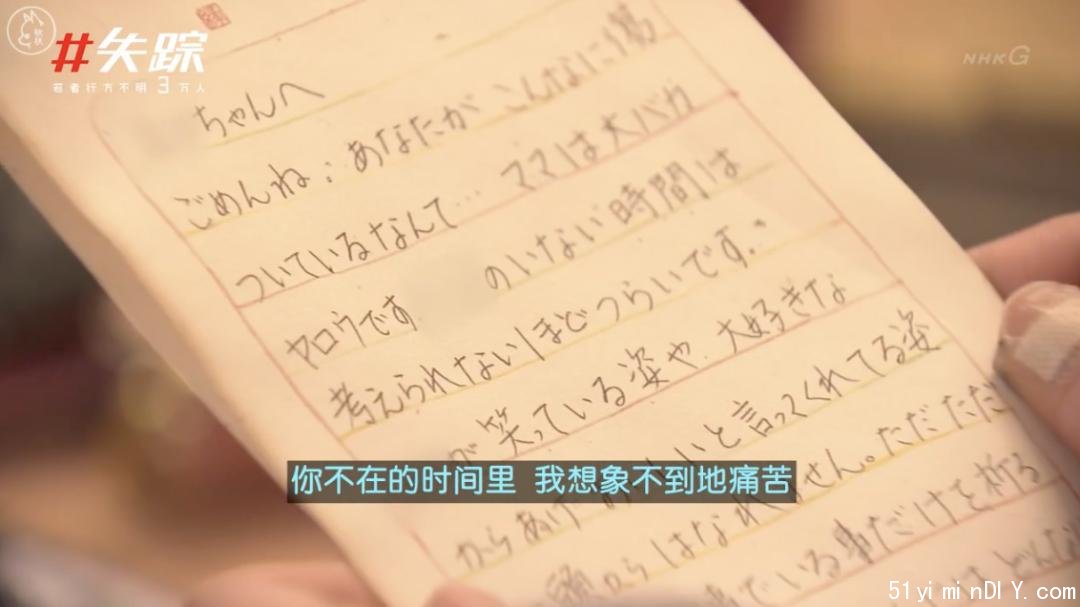 秋秋
#失踪
若者行方不明3万人
NHK G
ちゃんへ
ごめんね:あなたがこんなに傷
ついているなんて…ママは大バカ
ヤロウです のいない時間は
考えられないほどつらいです。
が笑っている姿や、大好きな
からあげ いと言ってくれてる姿
頭からはなれません。ただただ
でいる事だけを祈る
どんな
你不在的时间里 我想象不到地痛苦
51yiminDIY.com